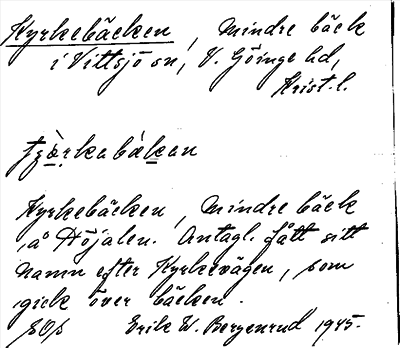 Kyrkebäcken, mindre bäck
i Vittsjö sn, V. Göinge hd,
Krist. l.
Kyrkebäcken, mindre bäck
å Höjalen. Antagl. fått sitt
namn efter Kyrkevägen, som
gick över bäcken.
Erik W. Bergenrud 1945.